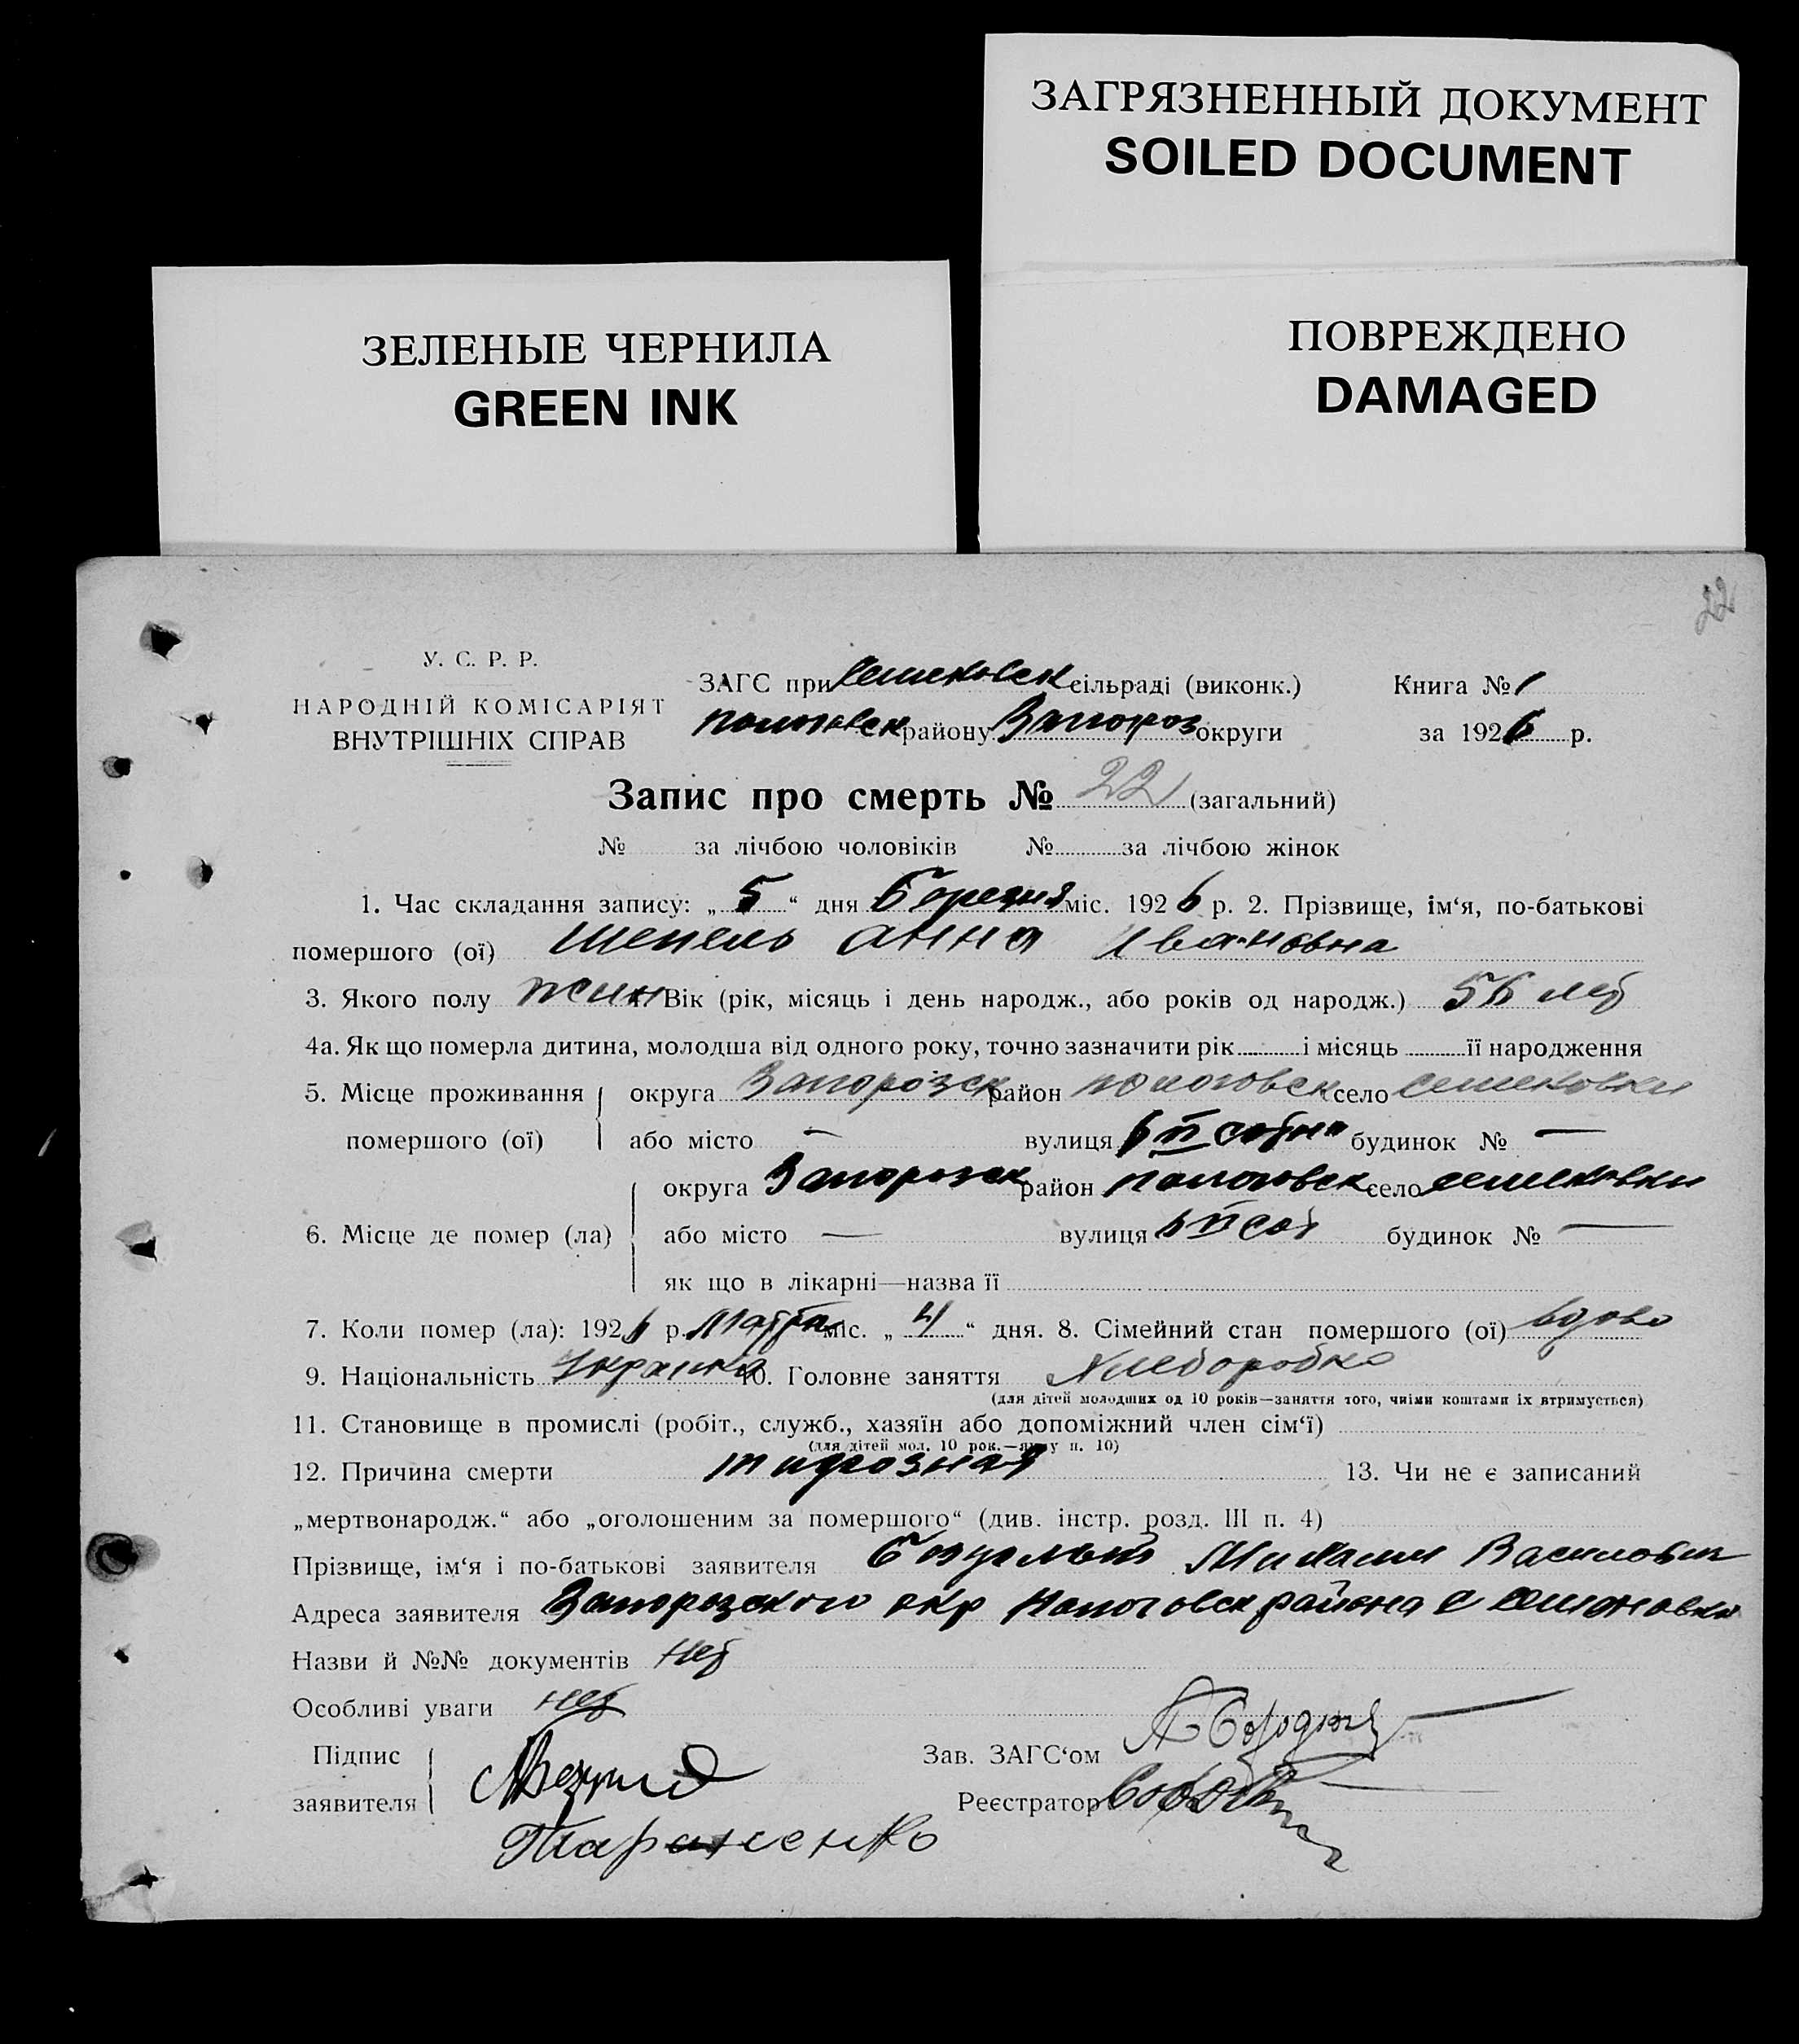 ЗАГРЯЗНЕННЫЙ ДОКУМЕНТ
SOILED DOCUMENT
ЗЕЛЕНЫЕ ЧЕРНИЛА
GREEN INK
ПОВРЕЖДЕНО
DAMAGED
22
У. С. Р. Р.
НАРОДНІЙ КОМІСАРІЯТ
ВНУТРІШНІХ СПРАВ
ЗАГС при сільраді (виконк.) Книга № 1
пологовск району Запороз округи за 1926 р.
Запис про смерть № 22 (загальний)
№ за лічбою чоловіків № за лічбою жінок
1. Час складання запису: „5“ дня Березня міс. 1926 р. 2. Прізвище, ім‘я, по-батькові
помершого (ої) Шепель анна Ивановна
3. Якого полу жин Вік (рік, місяць і день народж., або років од народж.) 56 лет
4а. Як що померла дитина, молодша від одного року, точно зазначити рік і місяць її народження
5. Місце проживання округа Запорозск район пологовск село
помершого (ої) або місто — вулиця 6 сотня будинок № —
округа Запорозск район пологовск село
6. Місце де помер (ла) або місто — вулиця 6 сот будинок № —
як що в лікарні—назва її
7. Коли помер (ла): 1926 р. Марта міс. „4“ дня. 8. Сімейний стан помершого (ої) вдова
9. Національність Украинка 10. Головне заняття Хлеборобка
(для дітей молодших од 10 років—заняття того, чиїми коштами їх втримується)
11. Становище в промислі (робіт., служб., хазяїн або допоміжний член сім‘ї)
(для дітей мол. 10 рок.—яку п. 10)
12. Причина смерти 13. Чи не є записаний
„мертвонародж.“ або „оголошеним за помершого“ (див. інстр. розд. III п. 4)
Прізвище, ім‘я і по-батькові заявителя Михаил Василович
Адреса заявителя Запорозского окр Пологовск района с
Назви й №№ документів нет
Особливі уваги нет
Підпис Зав. ЗАГС‘ом
заявителя Реєстратор